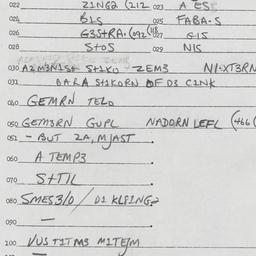 022 Z1NG2 (212 023 A ES
024 B1S 025 FABA·S
026 G3STRA· (092 027 G1S
028 StoS 029 N1S
030 A2M3N1St St1KO ZEM3 N1-XT3RN
031 BALA St1KORN OF D3 C1NK
040 GEMRN TELO
050 GEM3RN GUPL NADORN LEFL (466
051 - BUT 2A, MJAST
060 A TEMP3
070 StT1L
080 SMES3/0 / D1 KLP1NG2
090 —
100 VUS T1TM3 M1TEJM